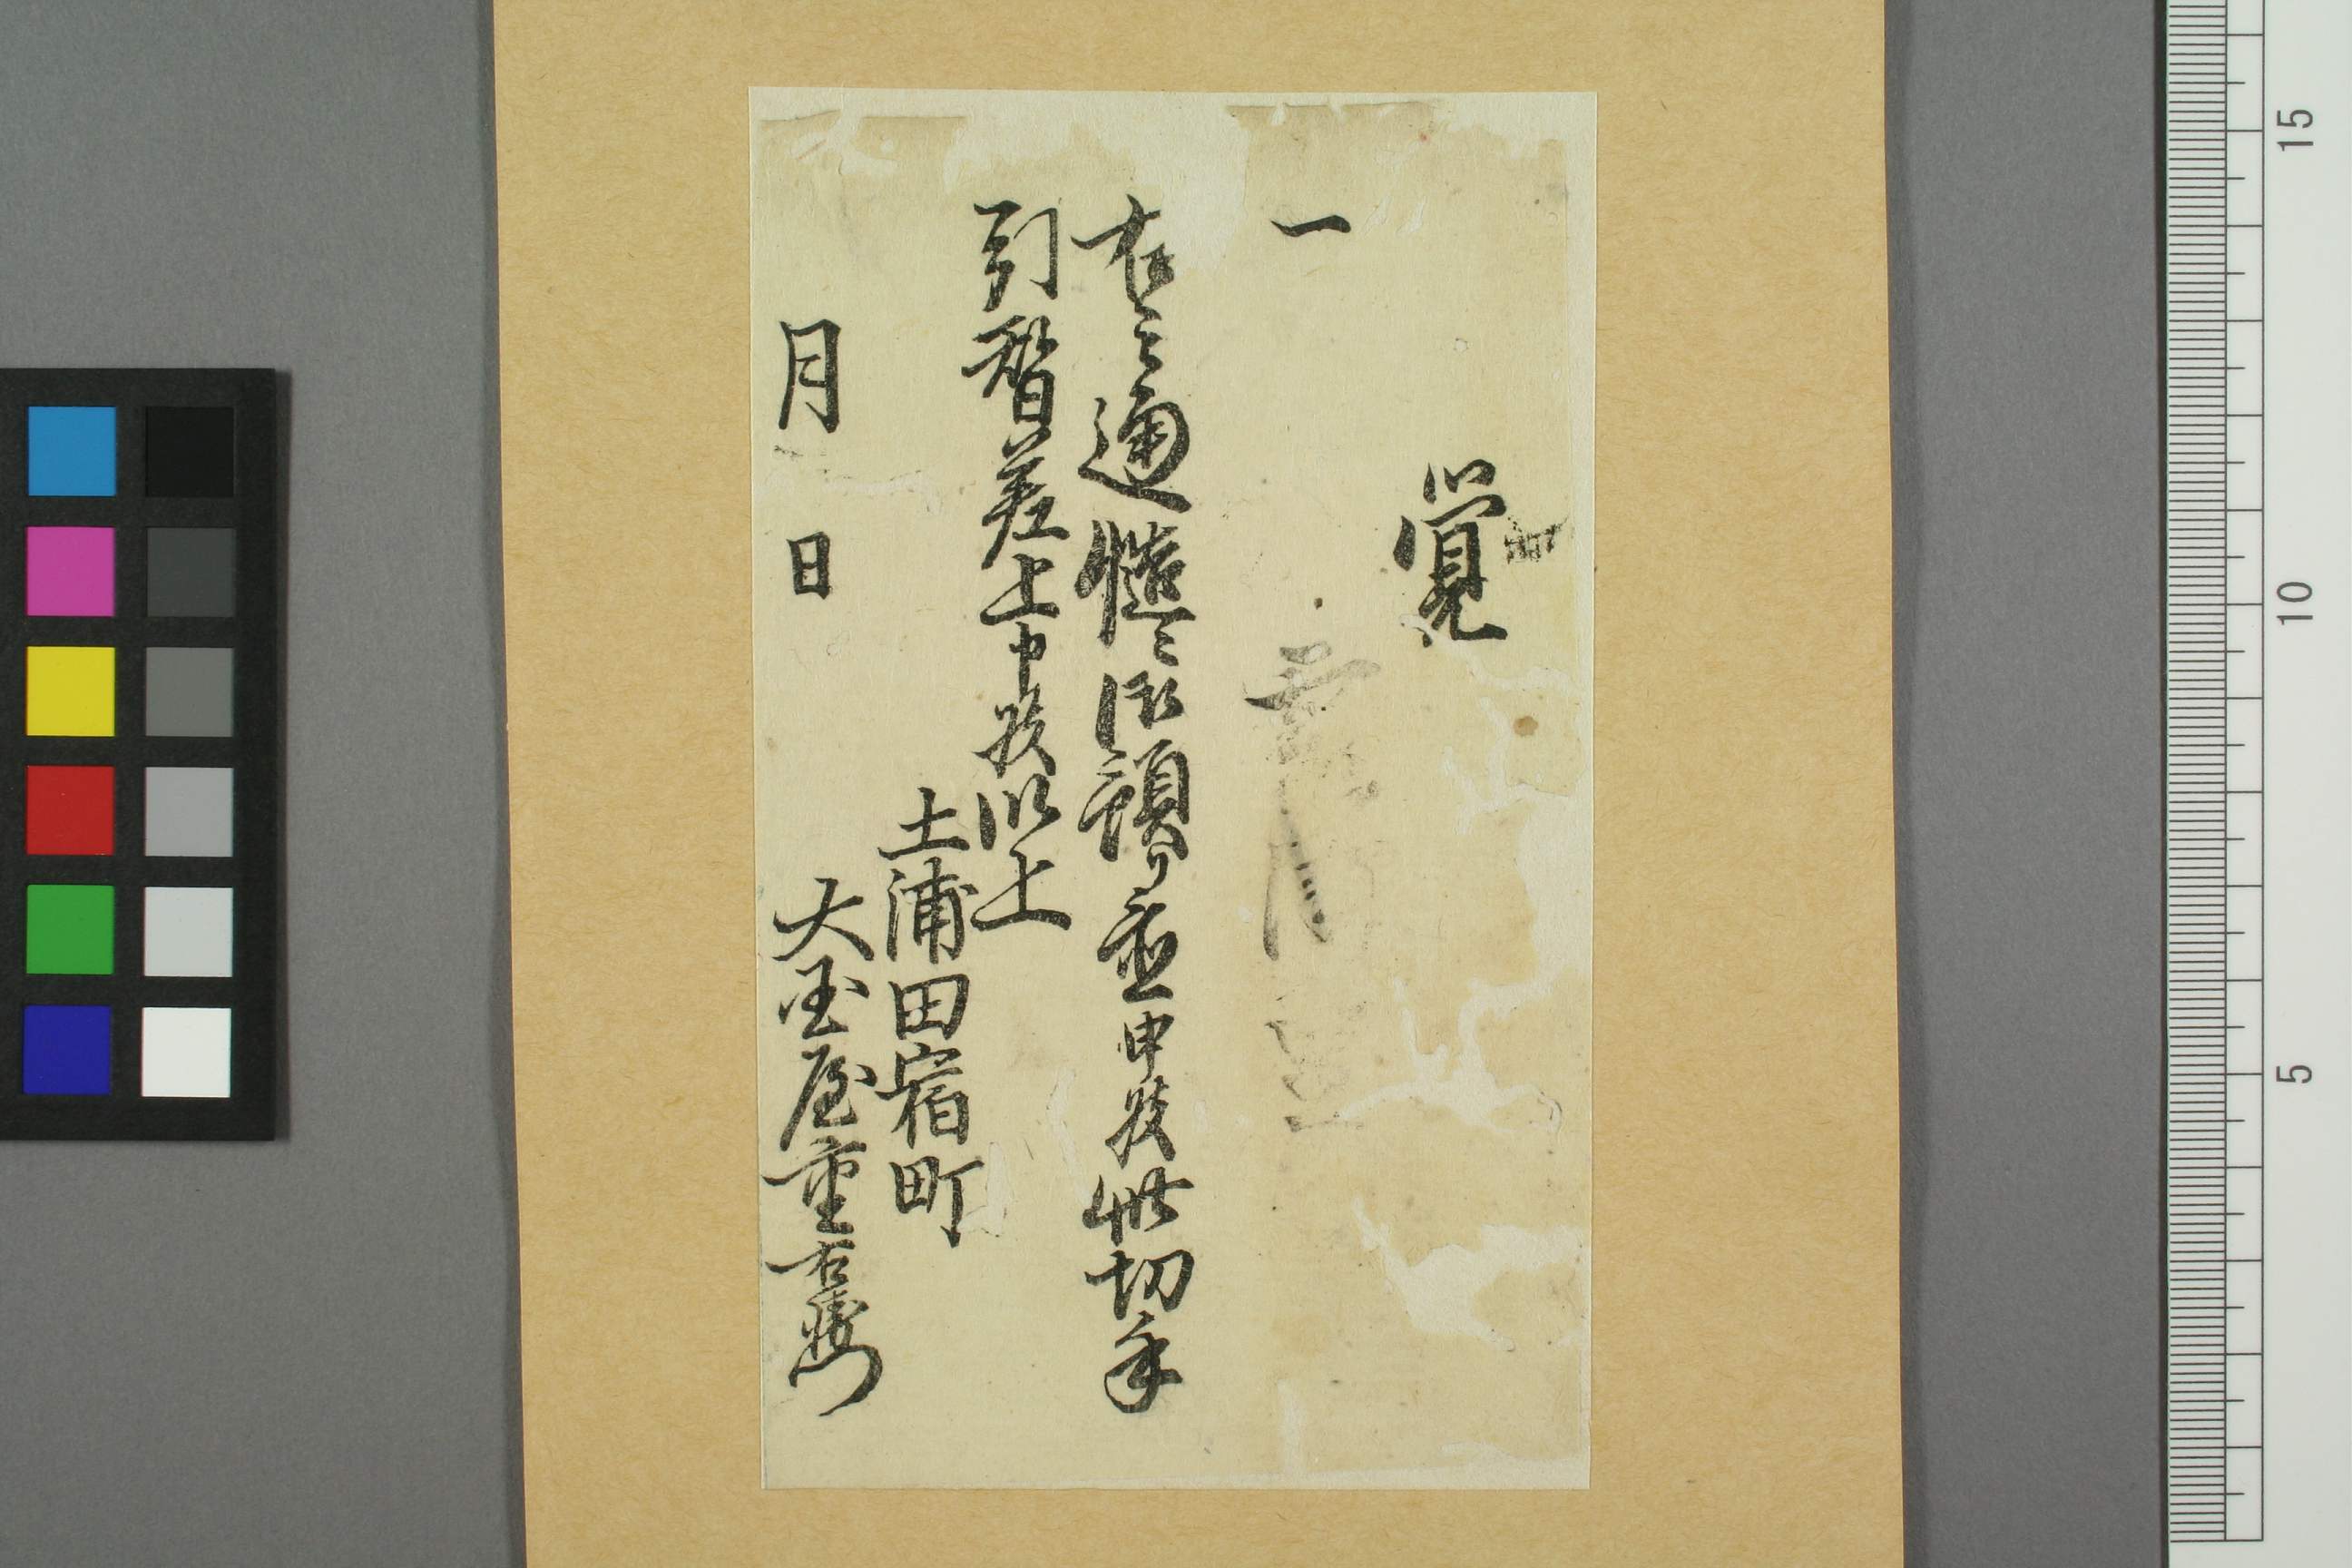 覺
一
右之通慥ニ御預り置申候此切手
引替差上申候以上
土浦田宿町
月 日
大国屋重右衛門
15
10
5